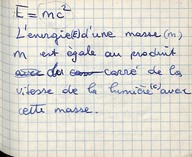 E = mc²
L'energie(E) d'une masse (m),
m est égale au produit
du carré de la
vitesse de la lumière(c) avec
cette masse.